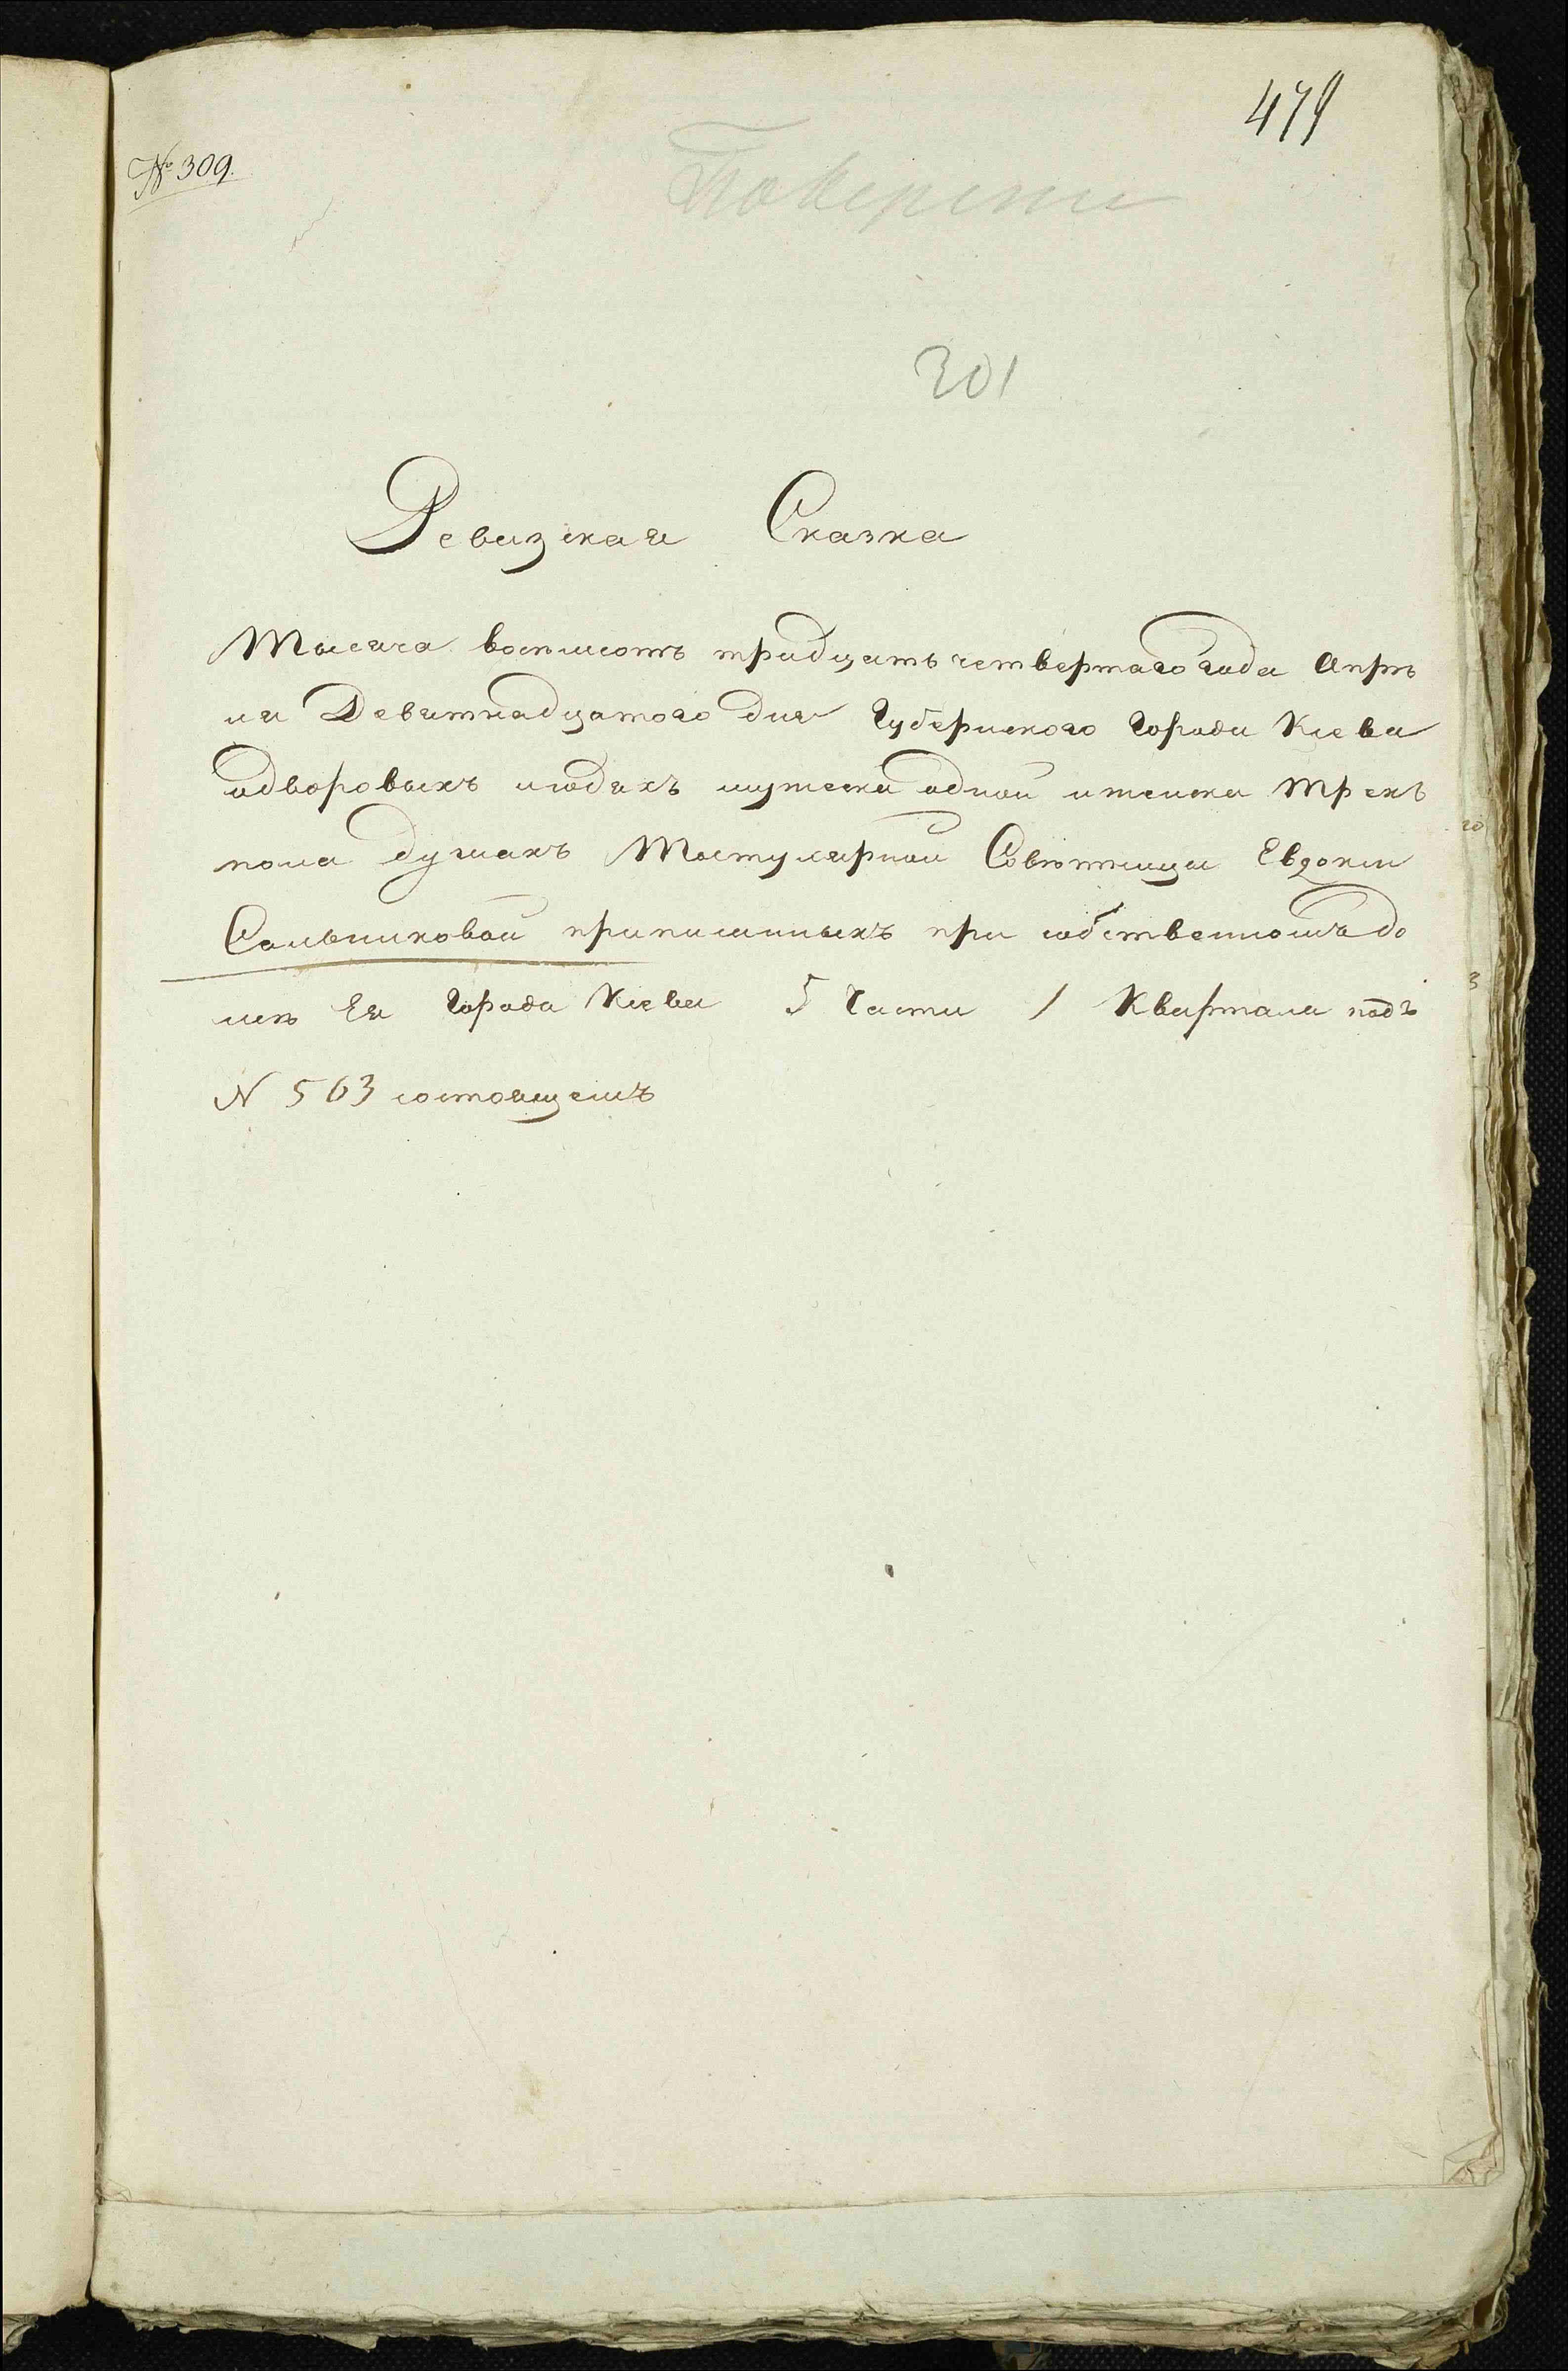 479
№ 309.
Поверени
301
Ревизская Сказка
Тысяча восемьсотъ тридцать четвертаго года Апрѣ
ля Девятнадцатого дня Губернского Города Кіева
одворовыхъ людяхъ мужеска одной иженска Трехъ
пола душахъ Тостулярной Совѣтницы Евдокіи
Сальниковой приписныхъ при собственномъ до
мѣ Ея Города Кіева 5 Части 1 Квартала подъ
N 563 состоящемъ